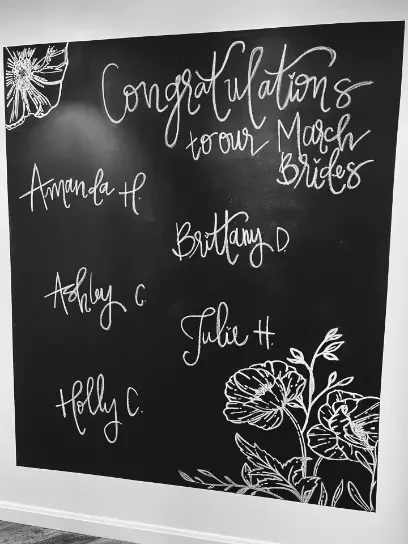 Congratulations
to our March
Brides
Amanda H.
Brittany D.
Ashley C.
Julie H.
Holly C.